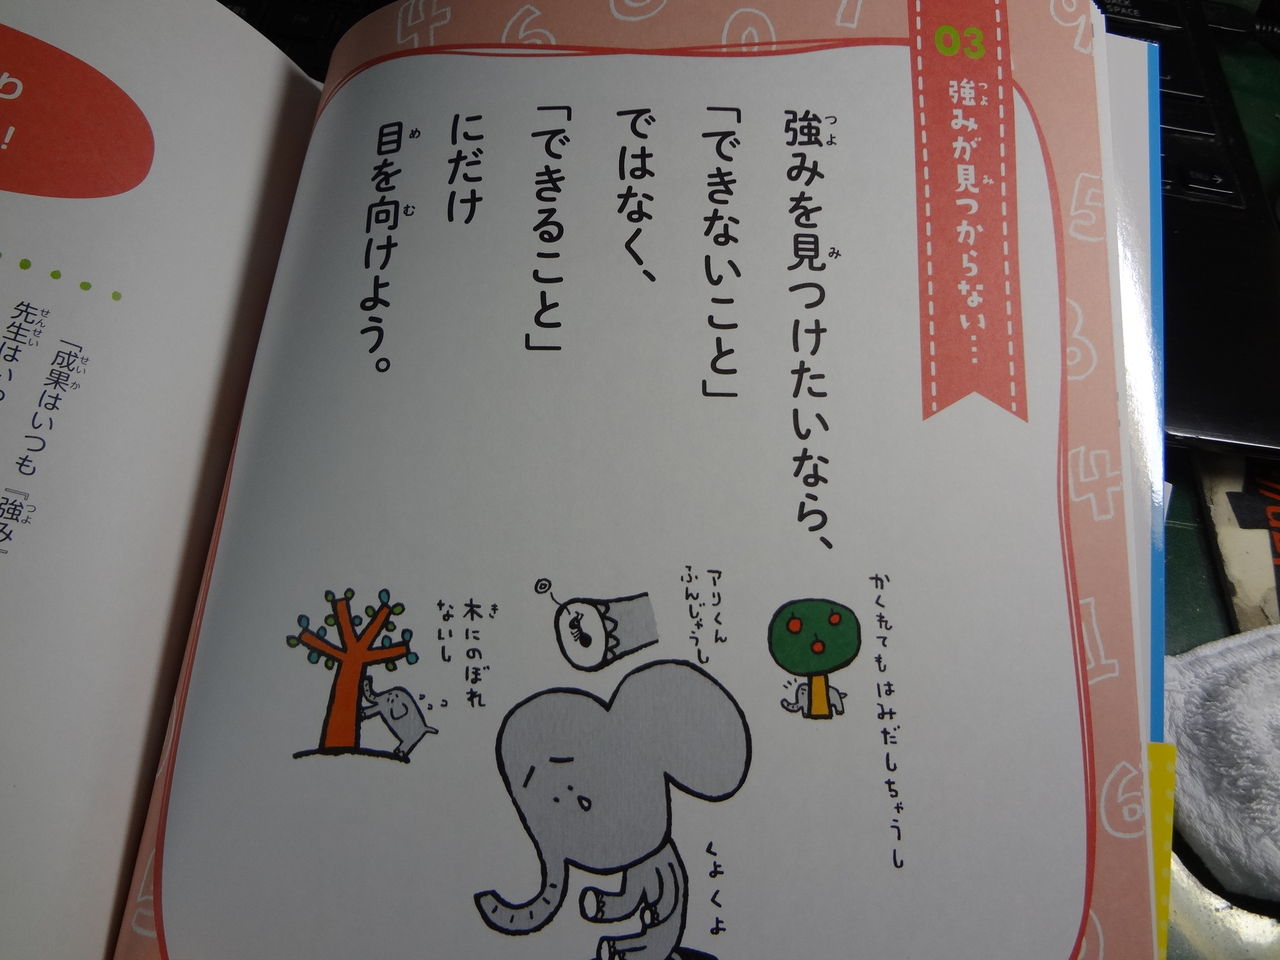 03
強みが見つからない…
強みを見つけたいなら、
「できないこと」
ではなく、
「できること」
にだけ
目を向けよう。
かくれてもはみだしちゃうし
アリくん
ふんじゃうし
木にのぼれ
ないし
くよくよ
「成果はいつも『強み』
先生はいつ